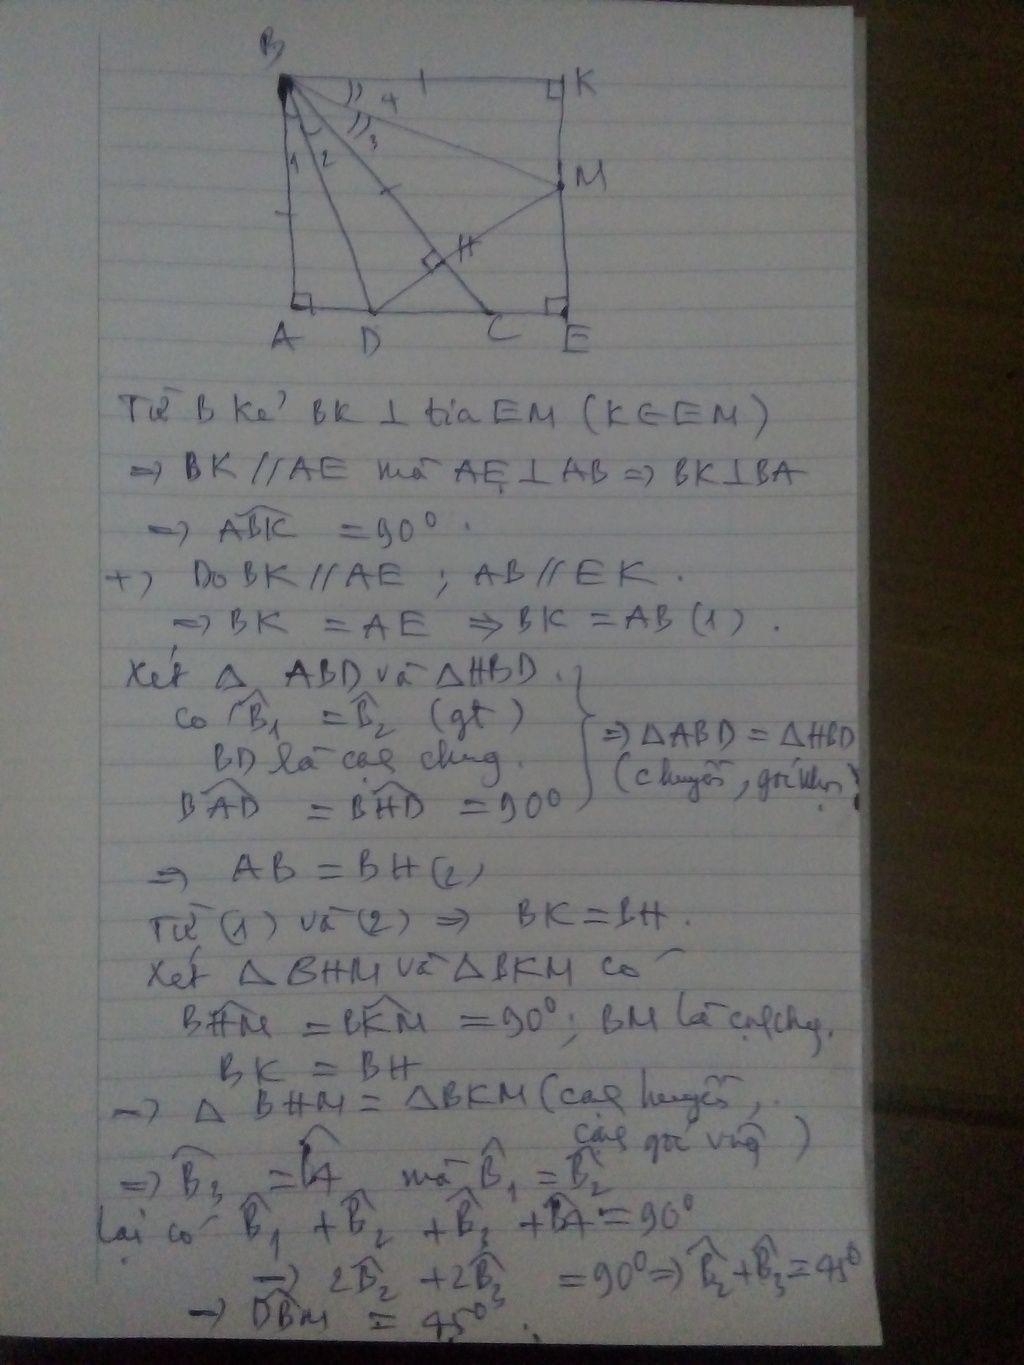 B
K
4
3
1 2
M
H
A D C E
Từ B kẻ BK ⊥ tia EM (K ∈ EM)
=> BK // AE mà AE ⊥ AB => BK ⊥ BA
=> ABK = 90°.
+) Do BK // AE ; AB // EK.
=> BK = AE => BK = AB (1).
Xét Δ ABD và Δ HBD.
có B̂1 = B̂2 (gt)
BD là cạnh chung.
BAD = BHD = 90°
=> ΔABD = ΔHBD
(c huyền, góc nhọn)
=> AB = BH (2)
Từ (1) và (2) => BK = BH.
Xét Δ BHM và Δ BKM có
BHM = BKM = 90°; BM là cạnh chg.
BK = BH
=> Δ BHM = ΔBKM (cạnh huyền,
cạnh góc vuông)
=> B̂3 = B̂4 mà B̂1 = B̂2
lại có B̂1 + B̂2 + B̂3 + B̂4 = 90°
=> 2B̂2 + 2B̂3 = 90° => B̂2 + B̂3 = 45°
=> DBM = 45°.